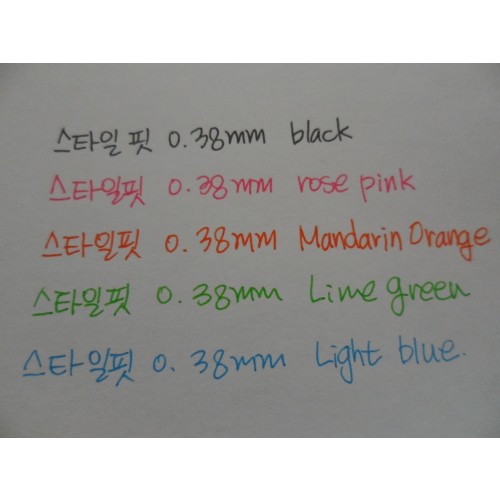 스타일핏 0.38mm black
스타일핏 0.38mm rose pink
스타일핏 0.38mm Mandarin Orange
스타일핏 0.38mm Lime green
스타일핏 0.38mm Light blue.